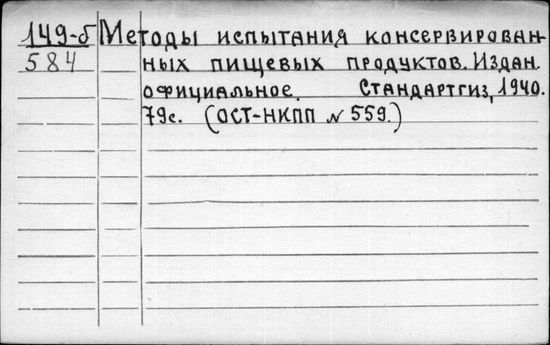 149-б Методы испытания консервирован-
584 ных пищевых продуктов. Издан.
официальное. Стандартгиз, 1940.
79с. (ОСТ-НКПП № 559.)